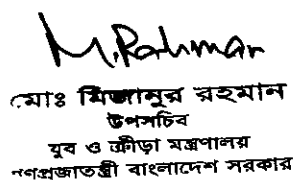 M. Rahman
মোঃ মিজানুর রহমান
উপসচিব
যুব ও ক্রীড়া মন্ত্রণালয়
গণপ্রজাতন্ত্রী বাংলাদেশ সরকার